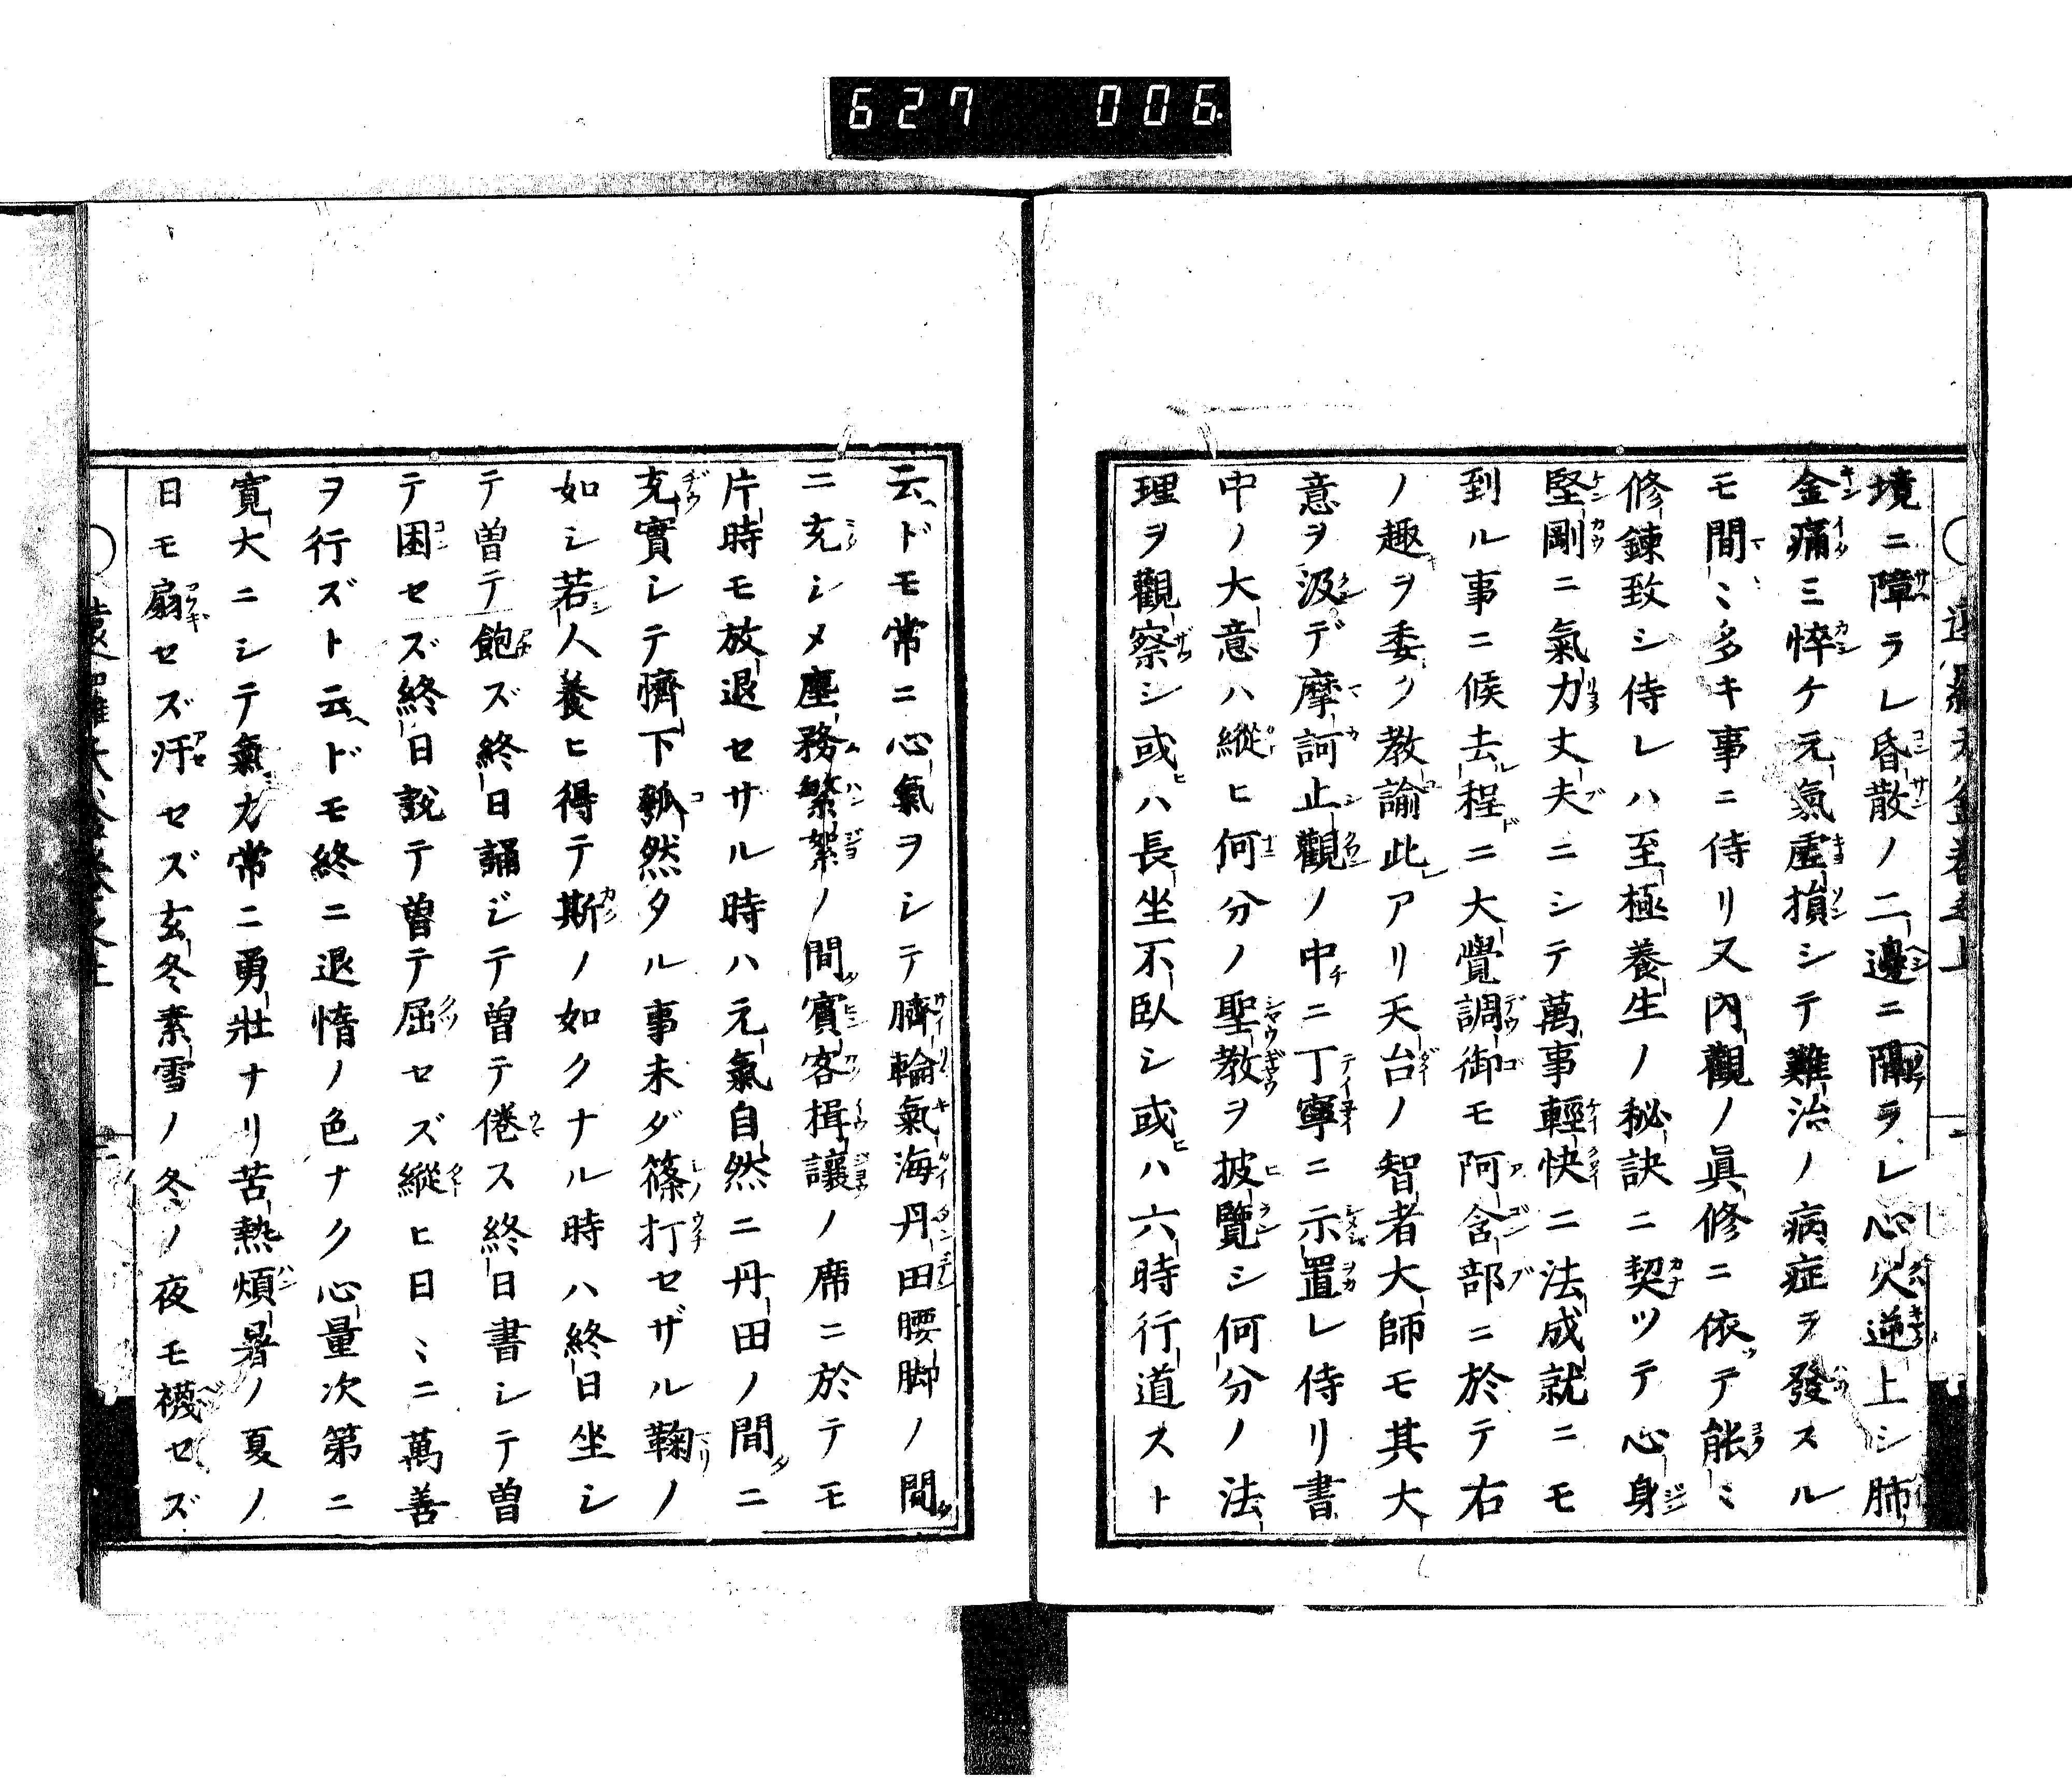 627 006
境ニ障ラレ昏散ノ二邊ニ隔ラレ心火逆上シ肺
金痛ミ悴ケ元氣虛損シテ難治ノ病症ヲ發スル
モ間ミ多キ事ニ侍リ又內觀ノ眞修ニ依テ能ミ
修鍊致シ侍レハ至極養生ノ秘訣ニ契ツテ心身
堅剛ニ氣力丈夫ニシテ萬事輕快ニ法成就ニモ
到ル事ニ候去程ニ大覺調御モ阿含部ニ於テ右
ノ趣ヲ委ク教諭此アリ天台ノ智者大師モ其大
意ヲ汲デ摩訶止觀ノ中ニ丁寧ニ示置レ侍リ書
中ノ大意ハ縱ヒ何分ノ聖教ヲ披覽シ何分ノ法
理ヲ觀察シ或ハ長坐不臥シ或ハ六時行道スト
云ドモ常ニ心氣ヲシテ臍輪氣海丹田腰脚ノ間
ニ充シメ塵務繁絮ノ間賓客揖讓ノ席ニ於テモ
片時モ放退セサル時ハ元氣自然ニ丹田ノ間ニ
充實シテ臍下瓠然タル事未ダ篠打セザル鞠ノ
如シ若人養ヒ得テ斯ノ如クナル時ハ終日坐シ
テ曽テ飽ズ終日誦ジテ曽テ倦ス終日書シテ曽
テ困セズ終日說テ曽テ屈セズ縱ヒ日ミニ萬善
ヲ行ズト云ドモ終ニ退惰ノ色ナク心量次第ニ
寬大ニシテ氣力常ニ勇壯ナリ苦熱煩暑ノ夏ノ
日モ扇セズ汗セズ玄冬素雪ノ冬ノ夜モ襪セズ